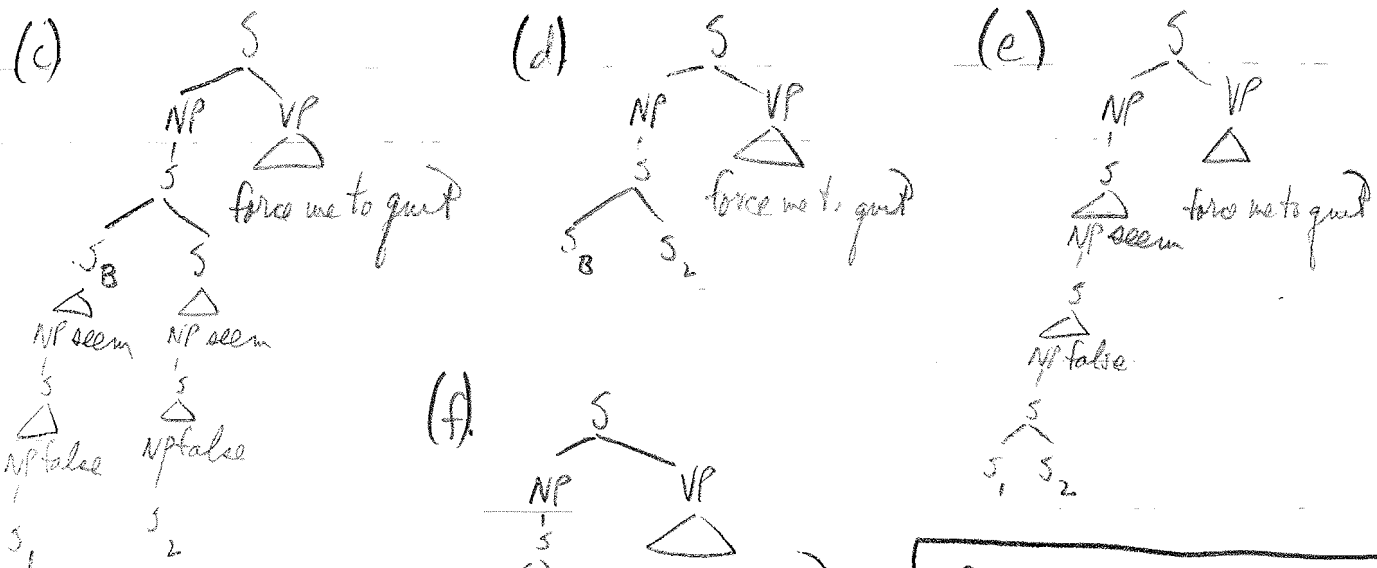 (c)
S
NP VP
S
force me to quit
S_B S
NP seem NP seem
S S
NP false NP false
S_1 S_2
(d)
S
NP VP
S
force me to quit
S_B S_2
(e)
S
NP VP
S
force me to quit
NP seem
S
NP false
S
S_1 S_2
(f)
S
NP VP
S